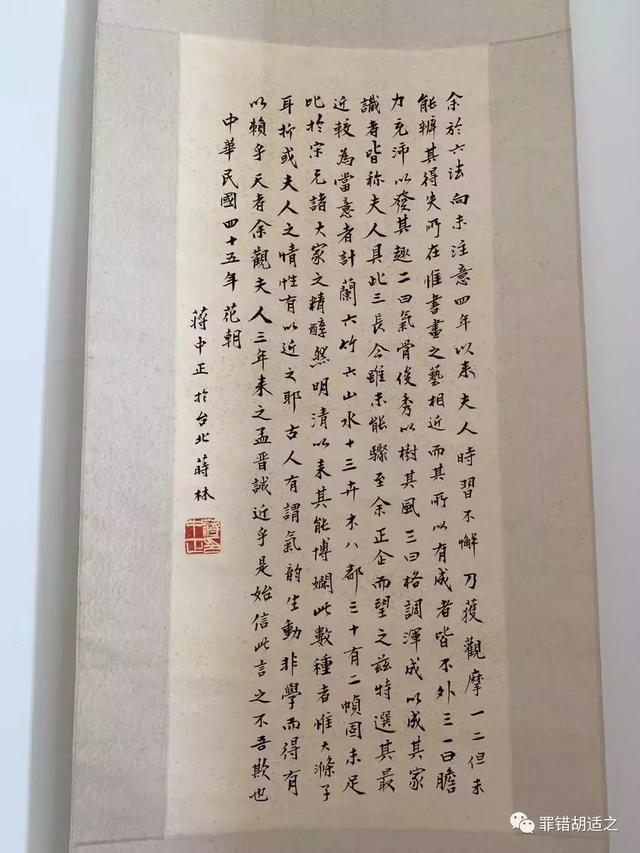 余於六法向未注意四年以来夫人時習不懈乃獲觀摩一二但未
能辨其得失所在惟書畫之藝相近而其所以有成者皆不外三一曰膽
力充沛以發其趣二曰氣骨俊秀以樹其風三曰格調渾成以成其家
識者皆称夫人具此三長今雖未能驟至余正企而望之茲特選其最
近較為當意者計蘭六竹六山水十三卉木八都三十有二幀固未足
比於宗元諸大家之精醇然明清以来其能博嫻此數種者惟大滌子
耳抑或夫人之情性有以近之耶古人有謂氣韵生動非學而得有
以賴乎天者余觀夫人三年来之孟晉誠近乎是始信此言之不吾欺也
中華民國四十五年 花朝
蔣中正於台北蒔林
罪错胡适之